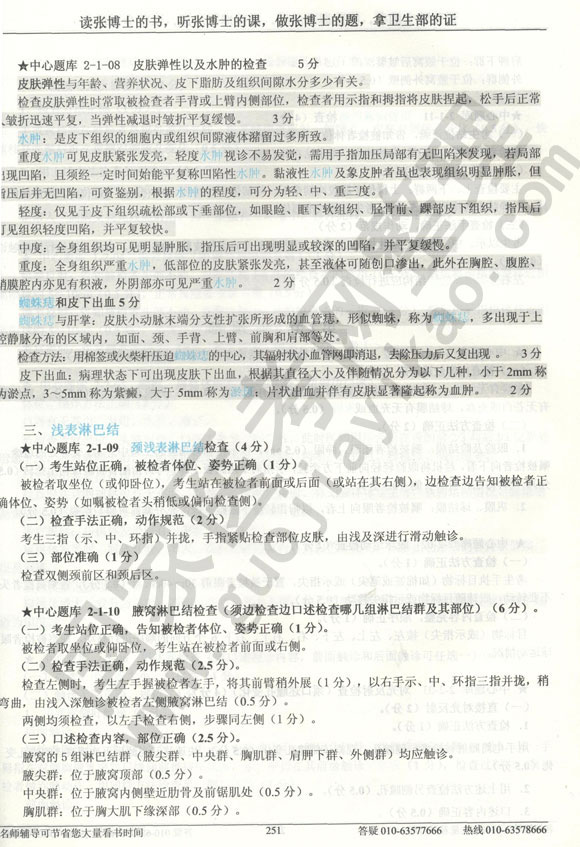 读张博士的书，听张博士的课，做张博士的题，拿卫生部的证
★中心题库 2-1-08 皮肤弹性以及水肿的检查 5分
皮肤弹性与年龄、营养状况、皮下脂肪及组织间隙水分多少有关。
检查皮肤弹性时常取被检查者手背或上臂内侧部位，检查者用示指和拇指将皮肤捏起，松手后正常
皱折迅速平复，当弹性减退时皱折平复缓慢。 3分
水肿：是皮下组织的细胞内或组织间隙液体潴留过多所致。
重度水肿可见皮肤紧张发亮，轻度水肿视诊不易发觉，需用手指加压局部有无凹陷来发现，若局部
现凹陷，且须经一定时间始能平复称凹陷性水肿。黏液性水肿及象皮肿者虽也表现组织明显肿胀，但
压后并无凹陷，可资鉴别，根据水肿的程度，可分为轻、中、重三度。
轻度：仅见于皮下组织疏松部或下垂部位，如眼睑、眶下软组织、胫骨前、踝部皮下组织，指压后
见组织轻度凹陷，并平复较快。
中度：全身组织均可见明显肿胀，指压后可出现明显或较深的凹陷，并平复缓慢。
重度：全身组织严重水肿，低部位的皮肤紧张发亮，甚至液体可随创口渗出，此外在胸腔、腹腔、
膜腔内亦见有积液，外阴部亦可见严重水肿。 2分
蜘蛛痣和皮下出血5分
蜘蛛痣与肝掌：皮肤小动脉末端分支性扩张所形成的血管痣，形似蜘蛛，称为蜘蛛痣，多出现于上
腔静脉分布的区域内，如面、颈、手背、上臂、前胸和肩部等处。
检查方法：用棉签或火柴杆压迫蜘蛛痣的中心，其辐射状小血管网即消退，去除压力后又复出现 。 3分
皮下出血：病理状态下可出现皮肤下出血，根据其直径大小及伴随情况分为以下几种，小于2mm称
为淤点，3～5mm称为紫癜，大于5mm称为淤斑；片状出血并伴有皮肤显著隆起称为血肿。 2分
三、浅表淋巴结
★中心题库 2-1-09 颈浅表淋巴结检查（4分）
（一）考生站位正确，被检者体位、姿势正确（1分）
被检者取坐位（或仰卧位），考生站在被检者前面或后面（或站在其右侧），边检查边告知被检者正
确体位、姿势（如嘱被检者头稍低或偏向检查侧）。
（二）检查手法正确，动作规范（2分）
考生三指（示、中、环指）并拢，手指紧贴检查部位皮肤，由浅及深进行滑动触诊。
（三）部位准确（1分）
检查双侧颈前区和颈后区。
★中心题库 2-1-10 腋窝淋巴结检查（须边检查边口述检查哪几组淋巴结群及其部位）（6分）。
（一）考生站位正确，告知被检者体位、姿势正确（1分）。
被检者取坐位或仰卧位，考生站在被检者前面或右侧。
（二）检查手法正确，动作规范（2.5分）。
检查左侧时，考生左手握被检者左手，将其前臂稍外展（1分），以右手示、中、环指三指并拢，稍
弯曲，由浅入深触诊被检者左侧腋窝淋巴结（0.5分）。
两侧均须检查，以左手检查右侧，步骤同左侧（1分）。
（三）口述检查内容，部位正确（2.5分）。
腋窝的5组淋巴结群（腋尖群、中央群、胸肌群、肩胛下群、外侧群）均应触诊。
腋尖群：位于腋窝顶部（0.5分）。
中央群：位于腋窝内侧壁近肋骨及前锯肌处（0.5分）。
胸肌群：位于胸大肌下缘深部（0.5分）。
名师辅导可节省您大量看书时间 251 答疑 010-63577666 热线 010-63578666
国家医考网整理
www.guojiayikao.com